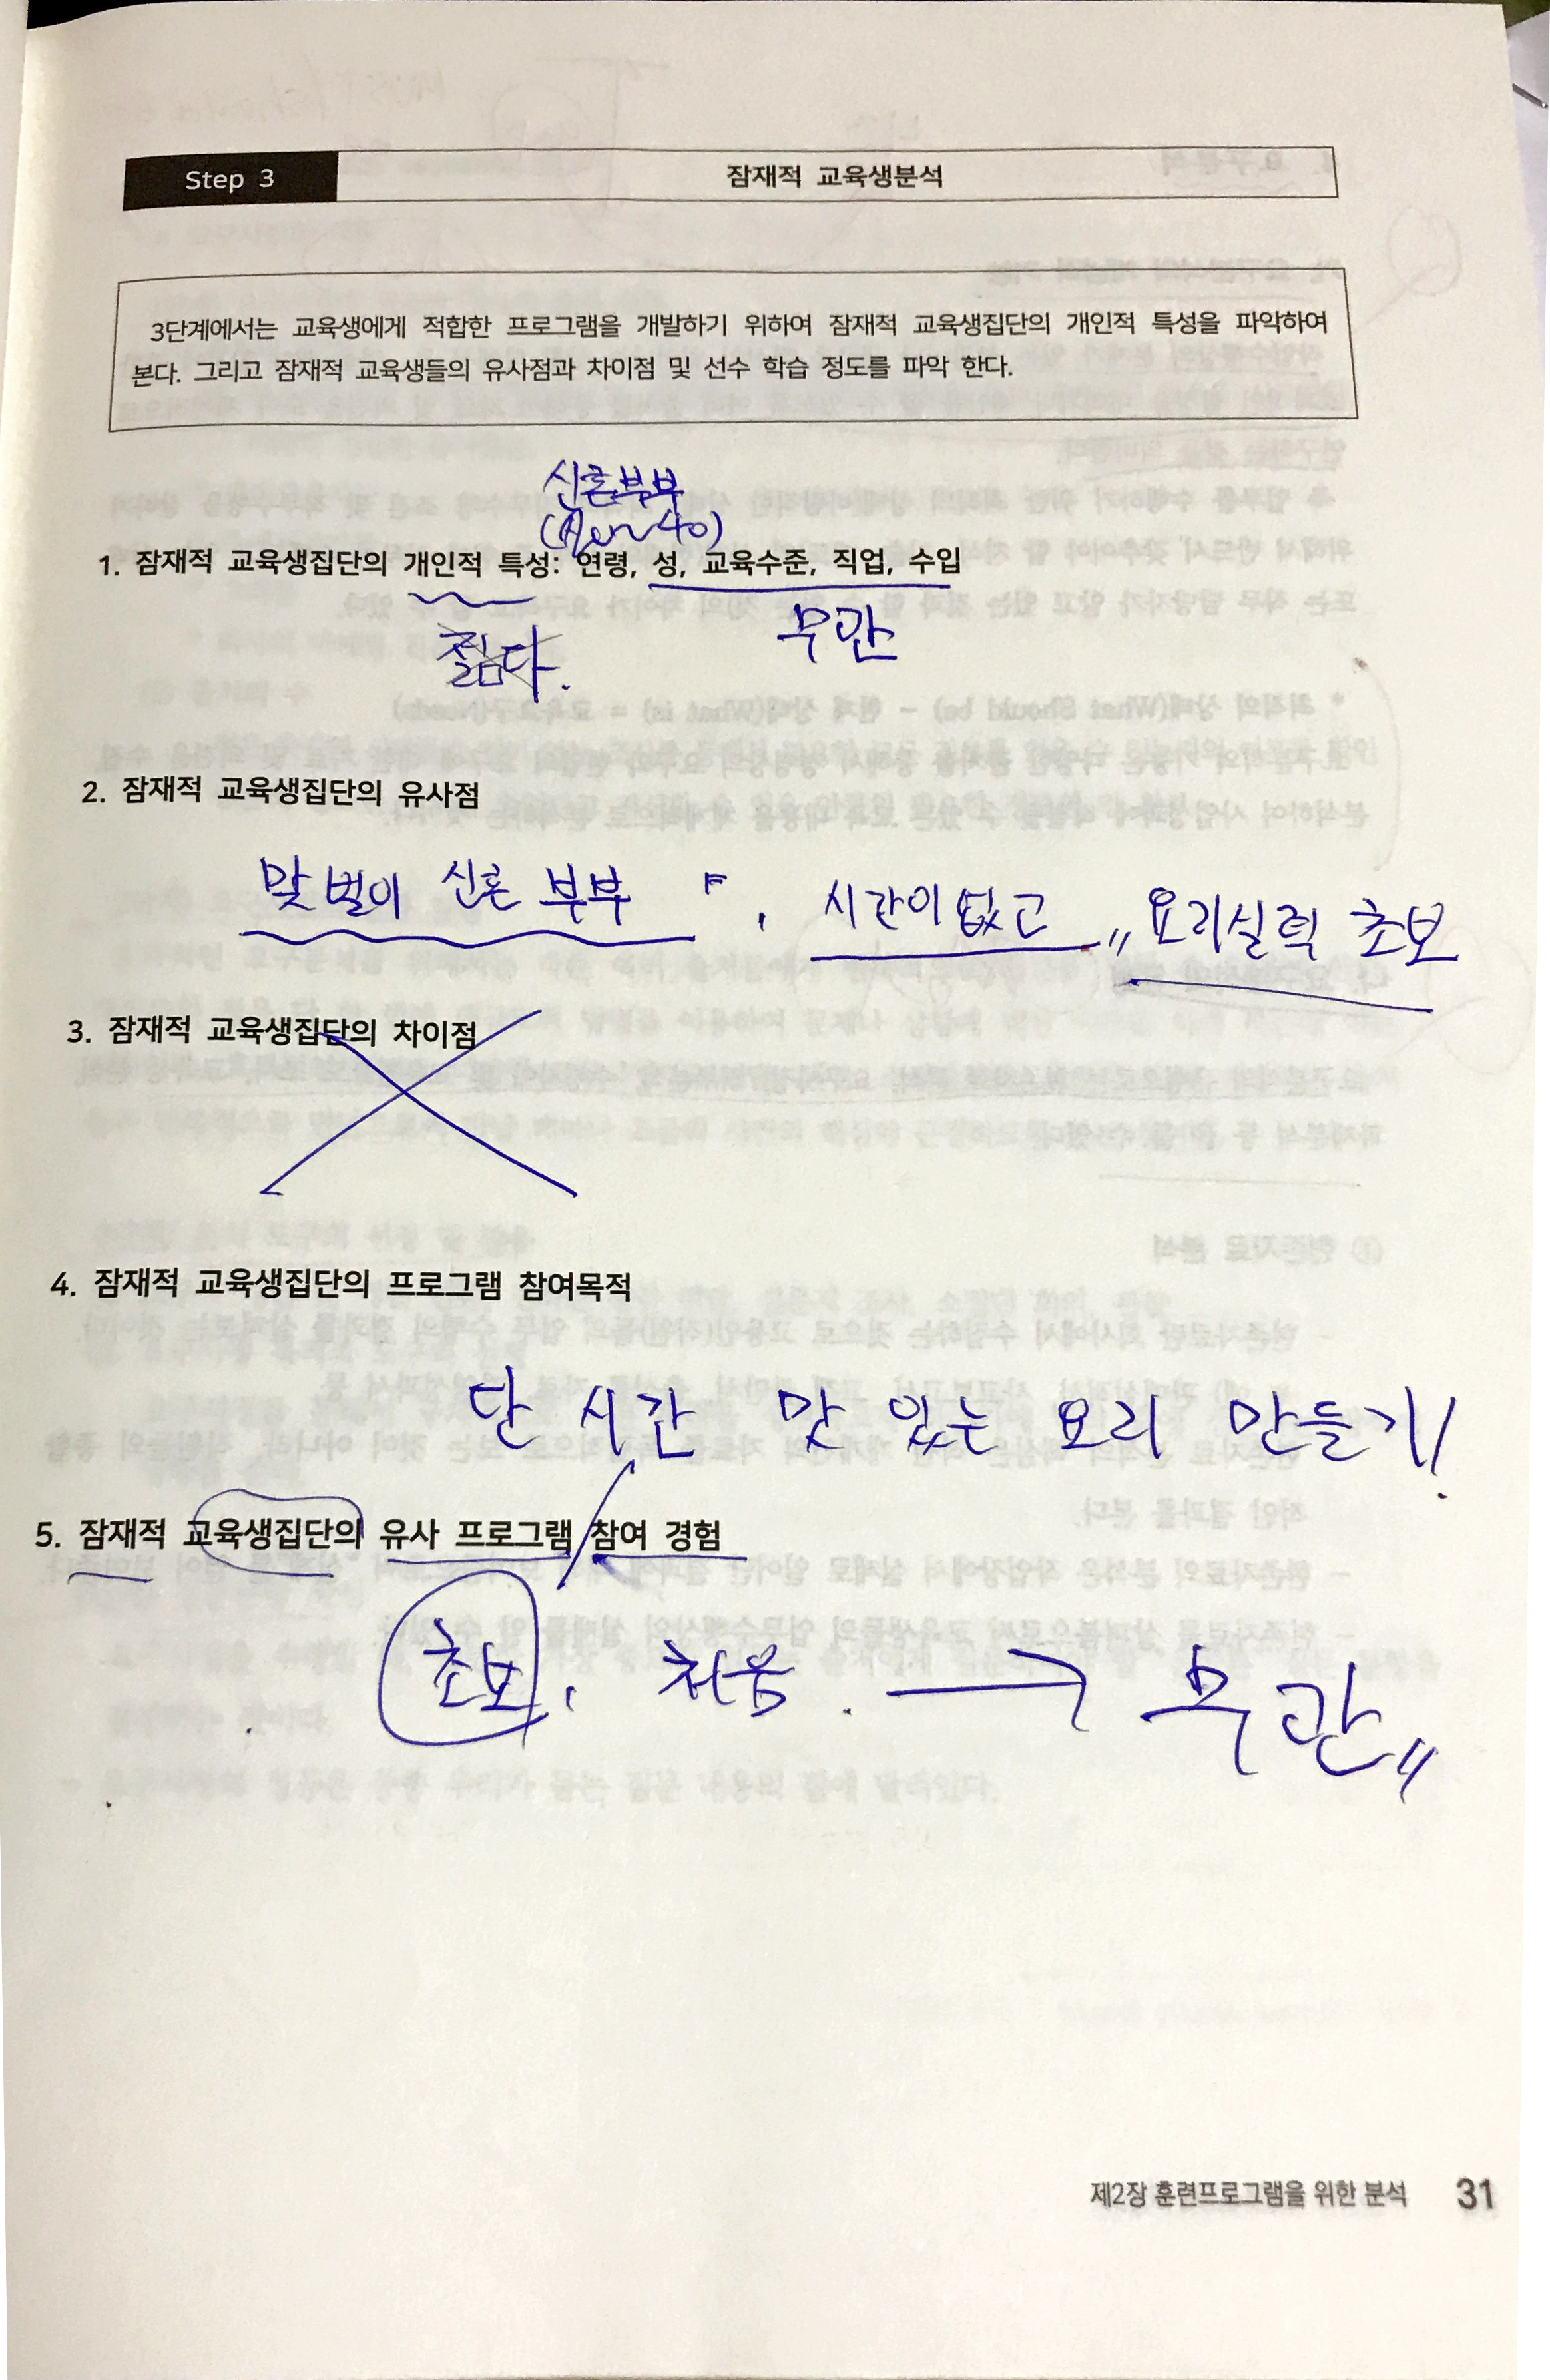 Step 3
잠재적 교육생분석
3단계에서는 교육생에게 적합한 프로그램을 개발하기 위하여 잠재적 교육생집단의 개인적 특성을 파악하여
본다. 그리고 잠재적 교육생들의 유사점과 차이점 및 선수 학습 정도를 파악 한다.
신혼부부
~40)
1. 잠재적 교육생집단의 개인적 특성: 연령, 성, 교육수준, 직업, 수입
젊다. 무관
2. 잠재적 교육생집단의 유사점
맞벌이 신혼 부부 , 시간이 없고 〃 요리실력 초보
3. 잠재적 교육생집단의 차이점
4. 잠재적 교육생집단의 프로그램 참여목적
단 시간 맛 있는 요리 만들기!
5. 잠재적 교육생집단의 유사 프로그램 참여 경험
초보, 처음. → 무관〃
제2장 훈련프로그램을 위한 분석 31